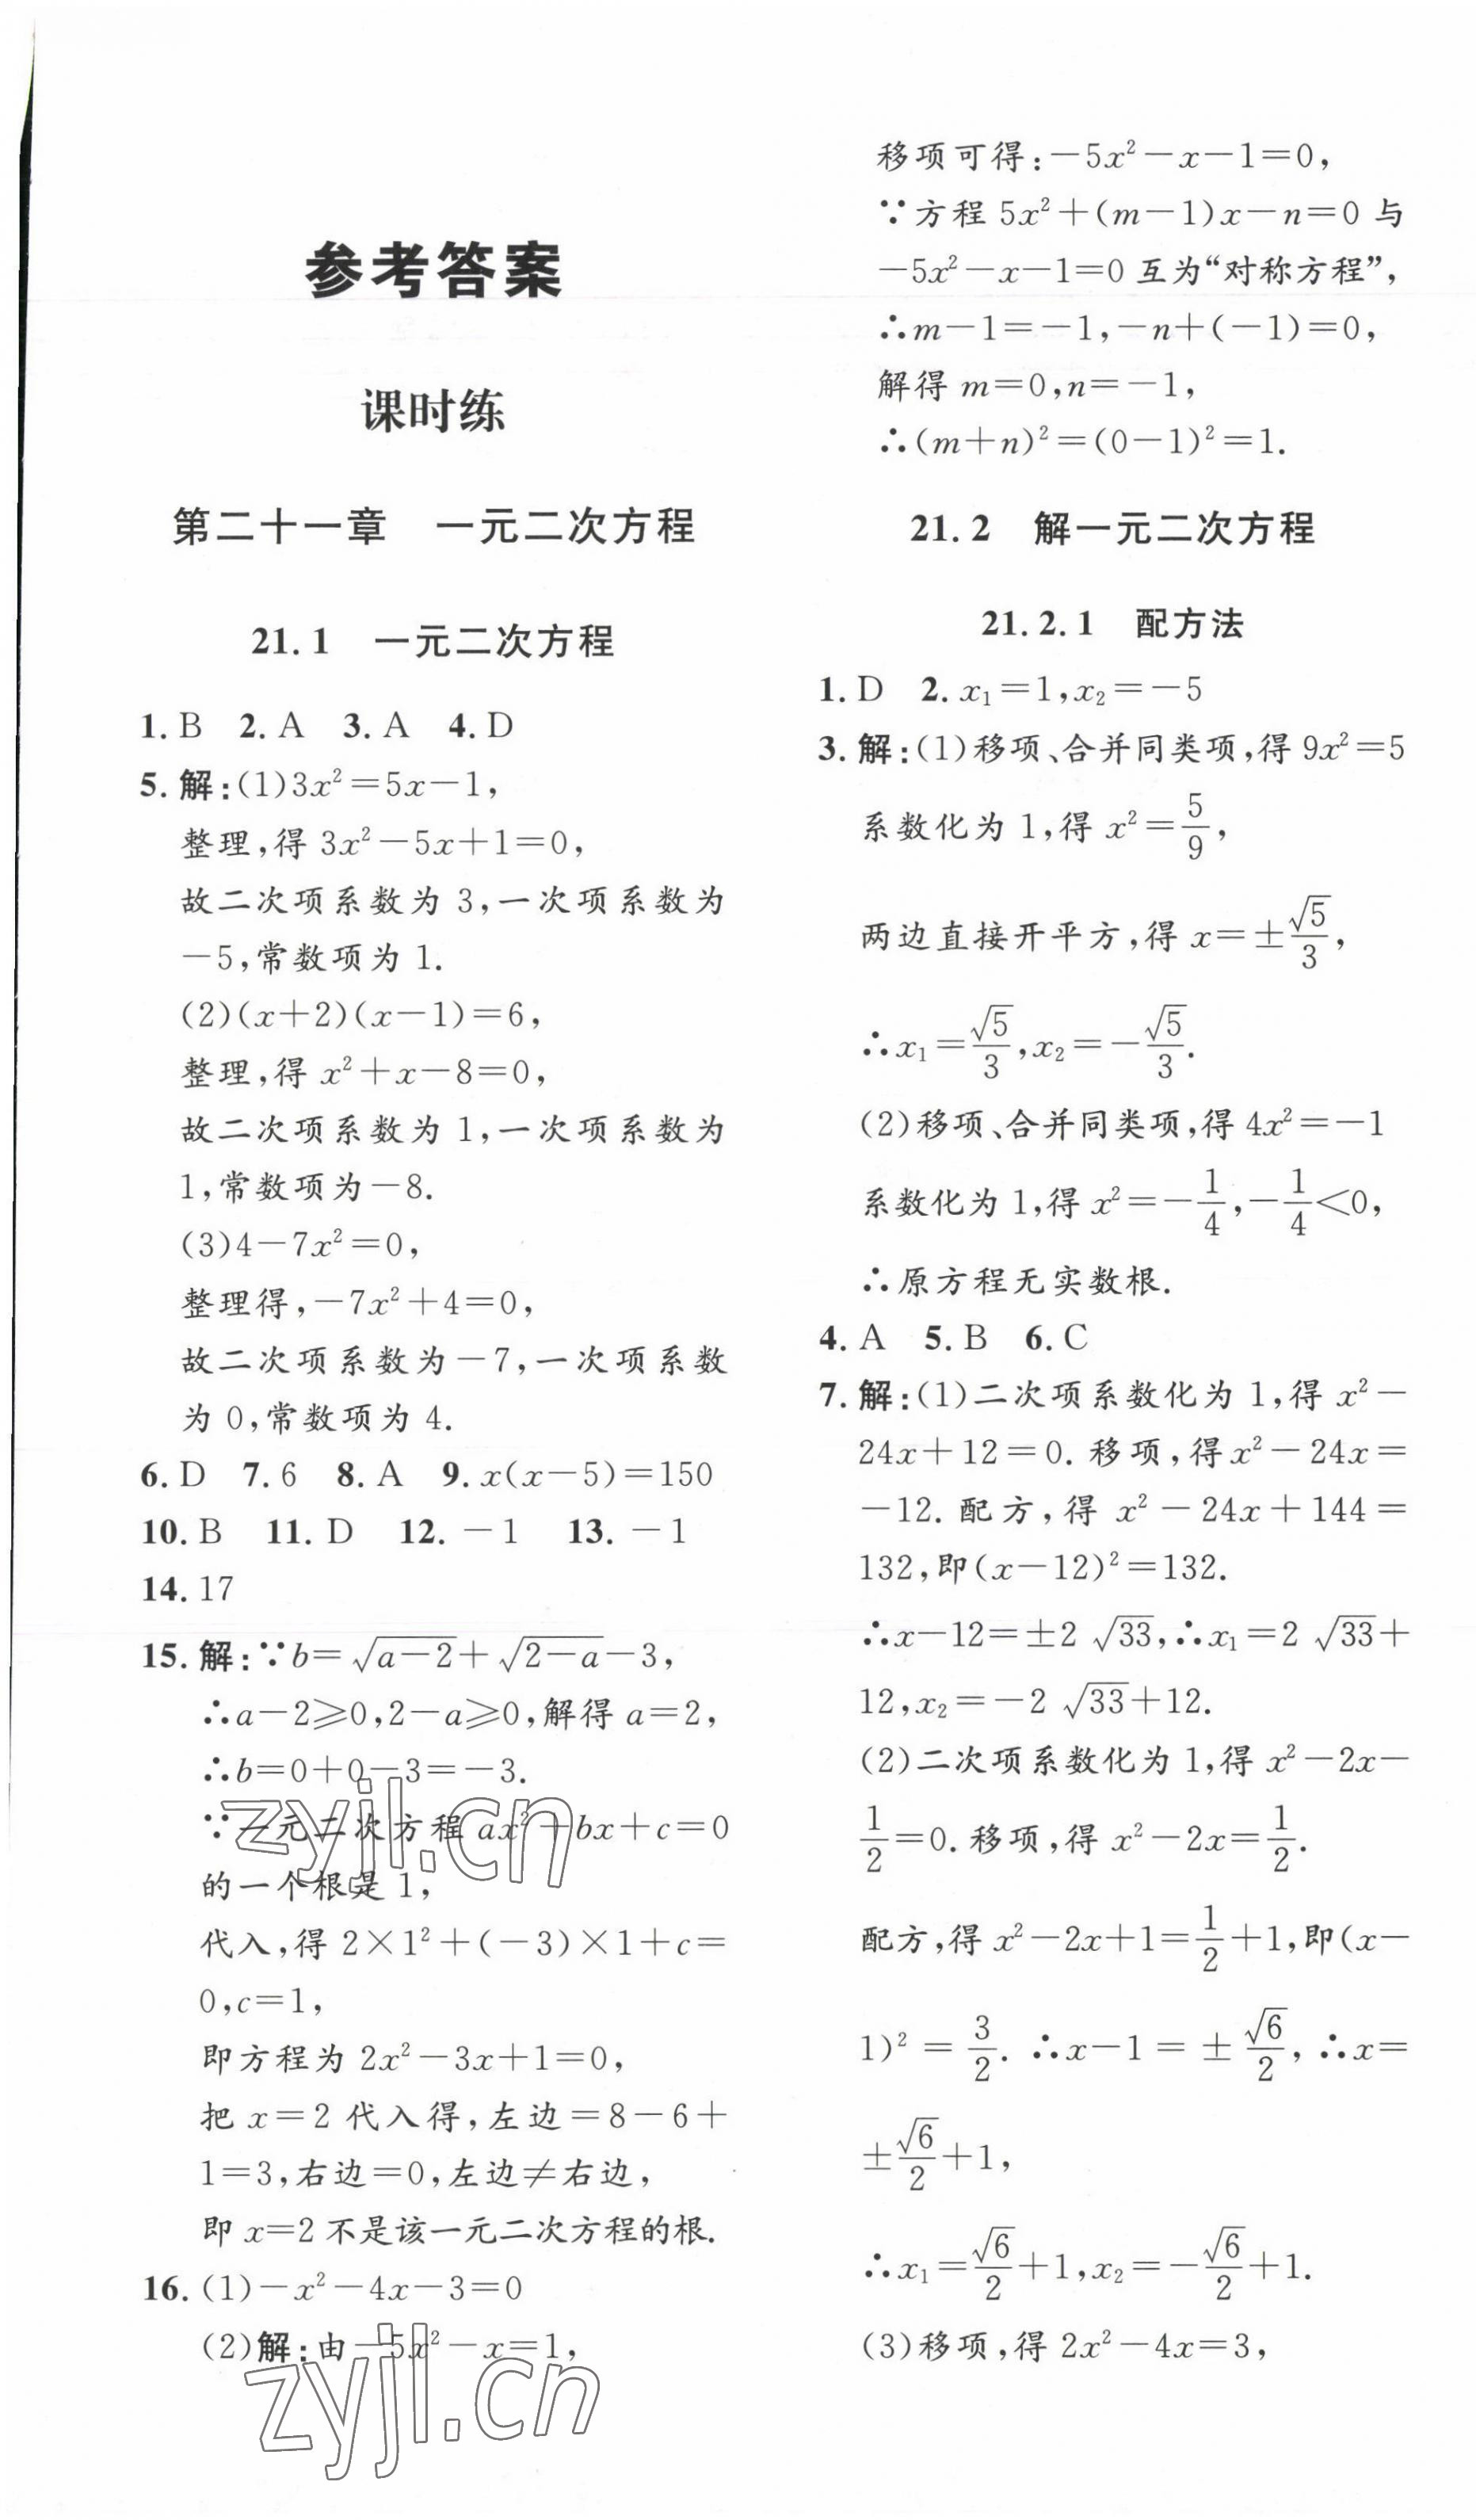 参考答案
课时练
第二十一章　一元二次方程
21.1　一元二次方程
1. B　2. A　3. A　4. D
5. 解:(1)3x²=5x-1,
整理,得 3x²-5x+1=0,
故二次项系数为 3,一次项系数为
-5,常数项为 1.
(2)(x+2)(x-1)=6,
整理,得 x²+x-8=0,
故二次项系数为 1,一次项系数为
1,常数项为-8.
(3)4-7x²=0,
整理得,-7x²+4=0,
故二次项系数为-7,一次项系数
为 0,常数项为 4.
6. D　7. 6　8. A　9. x(x-5)=150
10. B　11. D　12. -1　13. -1
14. 17
15. 解:∵b=√(a-2)+√(2-a)-3,
∴a-2≥0,2-a≥0,解得 a=2,
∴b=0+0-3=-3.
∵一元二次方程 ax²+bx+c=0
的一个根是 1,
代入,得 2×1²+(-3)×1+c=
0,c=1,
即方程为 2x²-3x+1=0,
把 x=2 代入得,左边=8-6+
1=3,右边=0,左边≠右边,
即 x=2 不是该一元二次方程的根.
16. (1)-x²-4x-3=0
(2)解:由-5x²-x=1,
移项可得:-5x²-x-1=0,
∵方程 5x²+(m-1)x-n=0 与
-5x²-x-1=0 互为“对称方程”,
∴m-1=-1,-n+(-1)=0,
解得 m=0,n=-1,
∴(m+n)²=(0-1)²=1.
21.2　解一元二次方程
21.2.1　配方法
1. D　2. x₁=1,x₂=-5
3. 解:(1)移项、合并同类项,得 9x²=5
系数化为 1,得 x²=5/9,
两边直接开平方,得 x=±√5/3,
∴x₁=√5/3,x₂=-√5/3.
(2)移项、合并同类项,得 4x²=-1
系数化为 1,得 x²=-1/4,-1/4<0,
∴原方程无实数根.
4. A　5. B　6. C
7. 解:(1)二次项系数化为 1,得 x²-
24x+12=0. 移项,得 x²-24x=
-12. 配方,得 x²-24x+144=
132,即(x-12)²=132.
∴x-12=±2√33,∴x₁=2√33+
12,x₂=-2√33+12.
(2)二次项系数化为 1,得 x²-2x-
1/2=0. 移项,得 x²-2x=1/2.
配方,得 x²-2x+1=1/2+1,即(x-
1)²=3/2. ∴x-1=±√6/2, ∴x=
±√6/2+1,
∴x₁=√6/2+1,x₂=-√6/2+1.
(3)移项,得 2x²-4x=3,
zyjl.cn
zyjl.cn